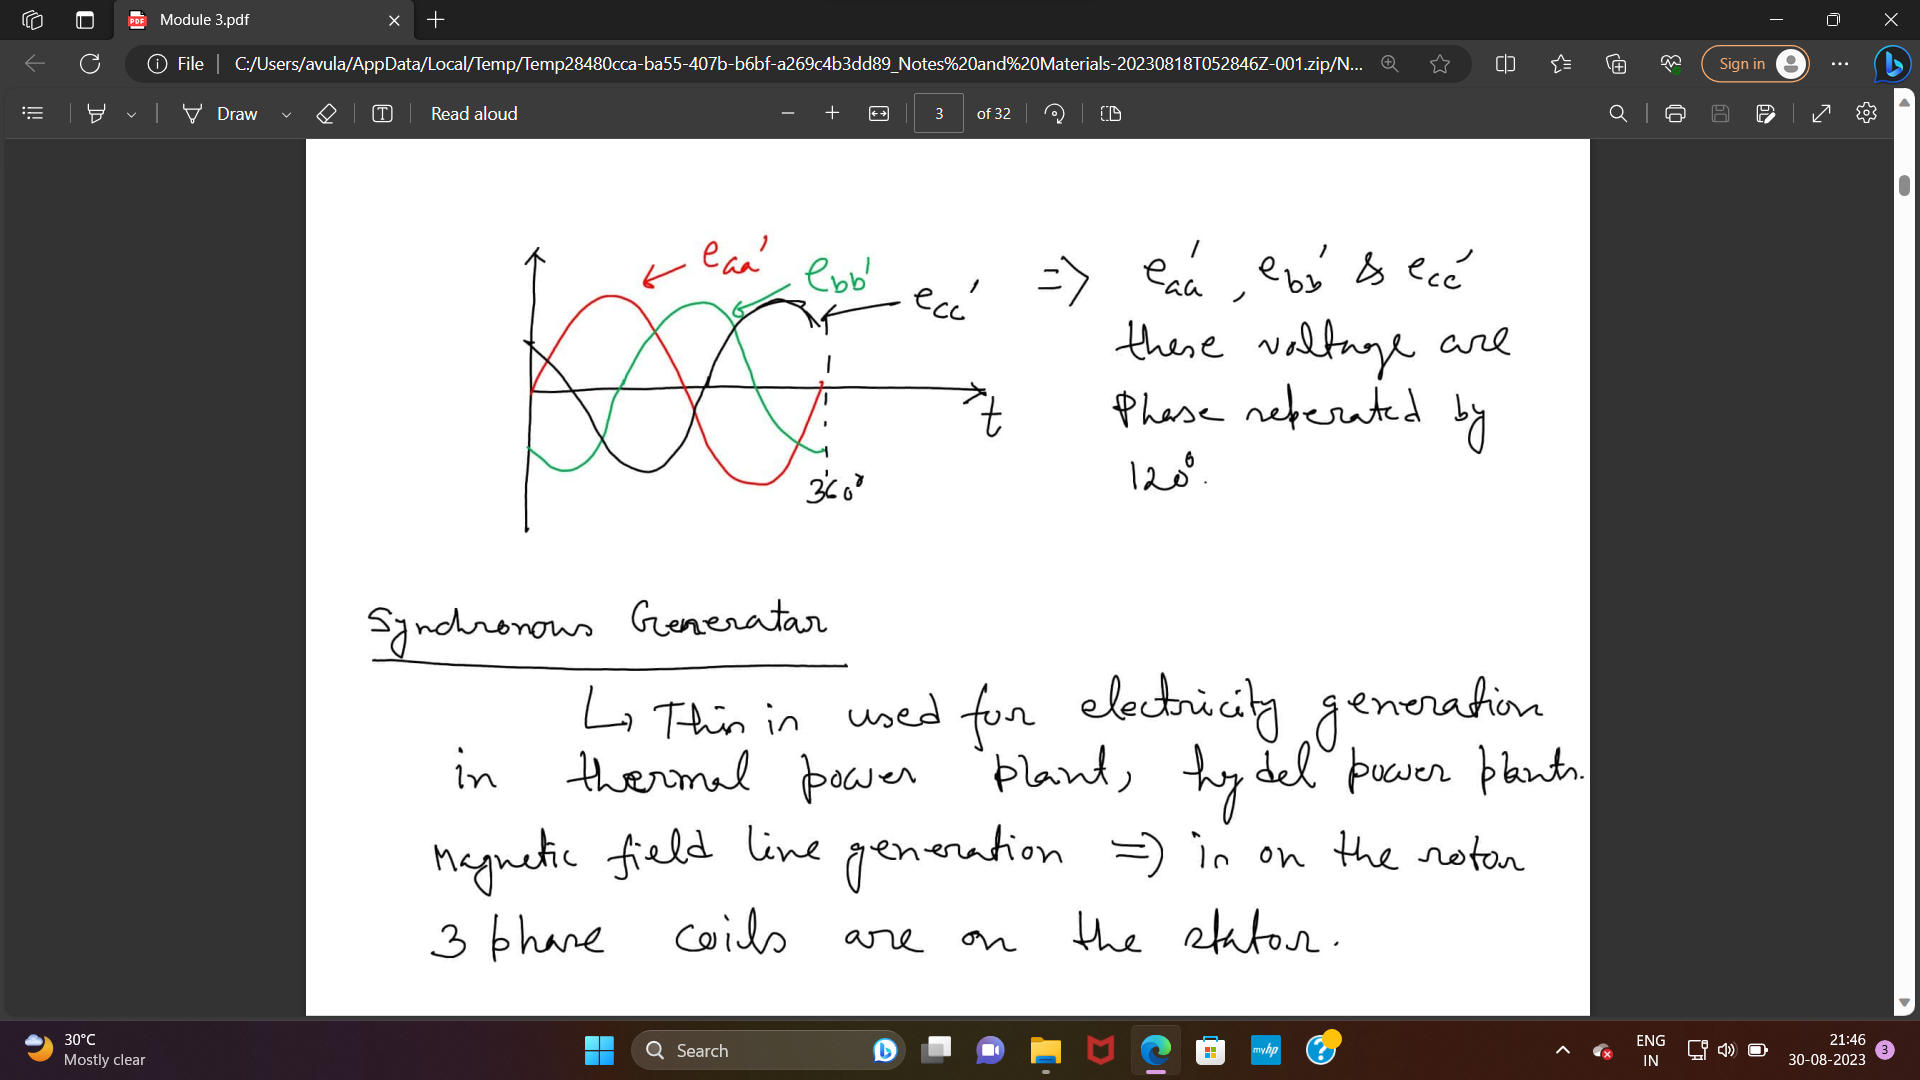 Module 3.pdf
File
C:/Users/avula/AppData/Local/Temp/Temp28480cca-ba55-407b-b6bf-a269c4b3dd89_Notes%20and%20Materials-20230818T052846Z-001.zip/N...
Sign in
Draw
Read aloud
3 of 32
eaa'
ebb'
ecc'
t
360°
=> eaa', ebb' & ecc'
these voltage are
Phase seperated by
120°.
Synchronous Generator
↳ This is used for electricity generation
in thermal power plant, hydel power plants.
Magnetic field line generation => is on the rotor
3 phase coils are on the stator.
30°C
Mostly clear
Search
myhp
ENG
IN
21:46
30-08-2023
3